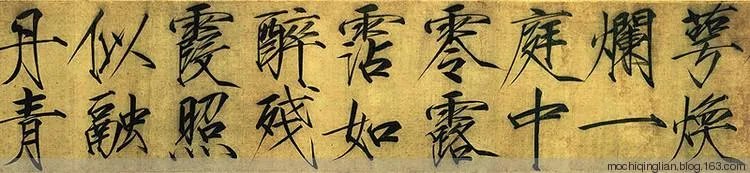 萼煥
爛一
庭中
零露
霑如
醉殘
霞照
似融
丹青
mochiqinglian.blog.163.com